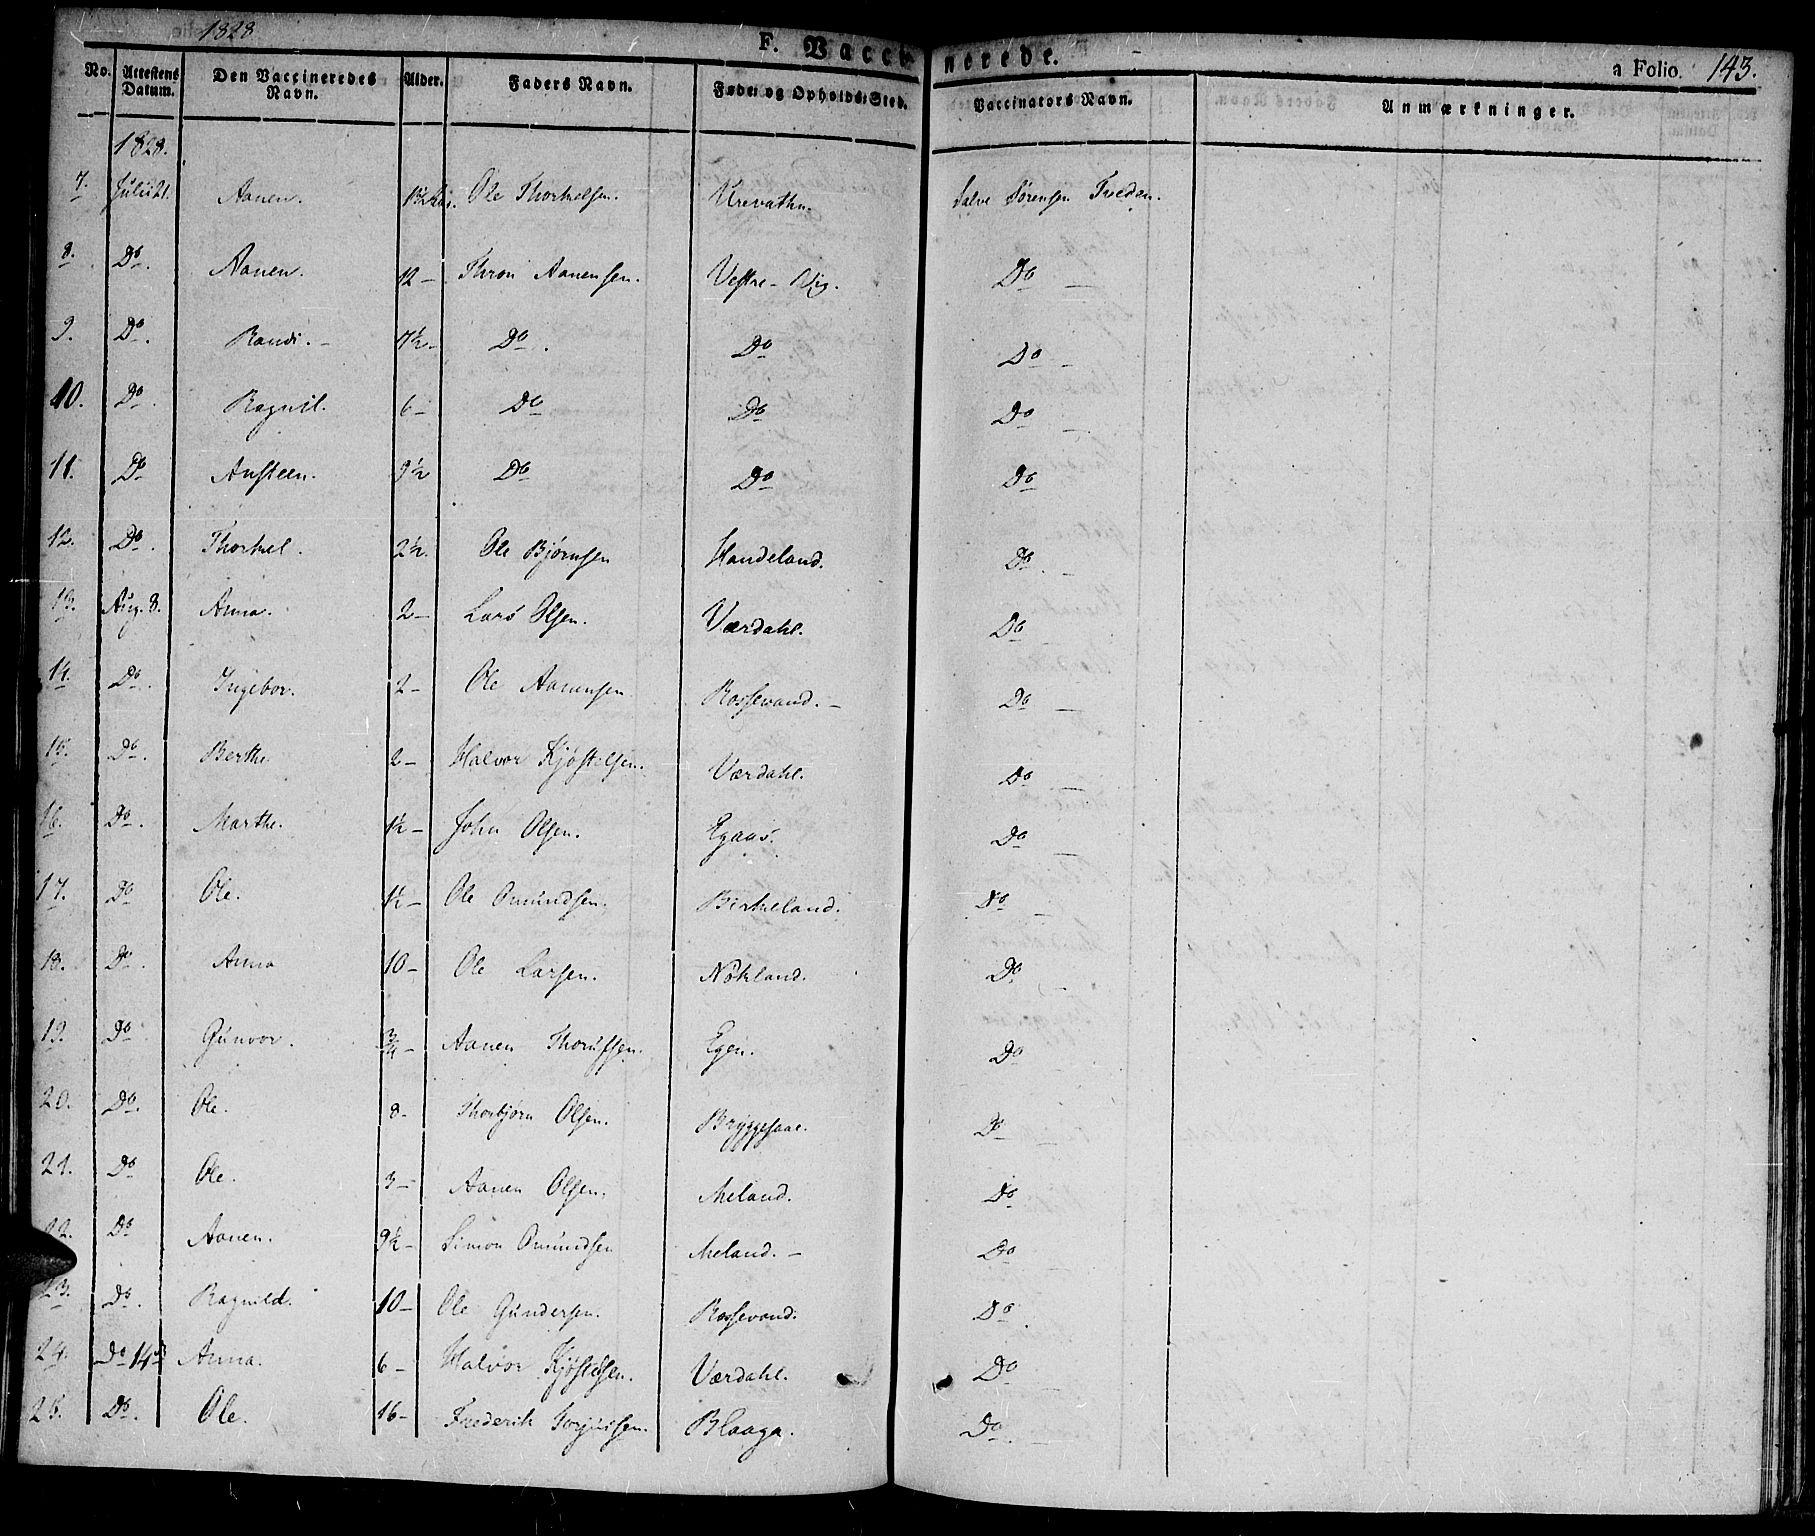 1828
F. Vaccinerede.
a Folio 143.
No. Attestens Datum. Den Vaccineredes Navn. Alder. Faders Navn. Føde og Opholds Sted. Vaccinators Navn. Anmærkninger.
1828.
7. Julii 21. Aanen. 1½ Ole Thorkelsen. Urevathn. Salve Sørensen Tveden.
8. Do. Aanen. 12 – Thron Aanensen. Vestre – Do –
9. Do. Randi. – 7½ – Do. Do Do –
10. Do. Ragnil. 6 – Do Do Do –
11. Do Austeen. 9½ Do Do Do
12. Do. Thorkel. 2½. Ole Bjørnsen Handeland. Do. –
13. Aug. 8. Anna. 2 – Lars Olsen. Værdahl. Do –
14. Do. Ingebor. 2 – Ole Aanensen Rossevand. – Do –
15. Do. Berthe 2 – Halvor Kjøstelsen. Værdahl. Do –
16. Do. Marthe. 1½ – John Olsen. Egaas. Do –
17. Do Ole. 1½ – Ole Omundsen. Birkeland. Do –
18. Do. Anna 10 – Ole Larsen. Nökland. Do. –
19. Do. Gunvor. ¾ – Aanen Thorufsen. Egen. Do
20. Do. Ole. 8 – Thorbjørn Olsen. Bryggesaae. Do –
21. Do Ole. 3 – Aanen Olsen. Meland. Do
22. Do Aanen. 9½ – Simon Omundsen Meland. – Do
23. Do. Ragnild. 10 – Ole Gundersen. Rossevand. Do.
24. Do 14de Anna. 6 – Halvor Kjøstelsen. Værdahl. Do –
25. Do. Ole. 16 – Frederik Blaaga. Do. –